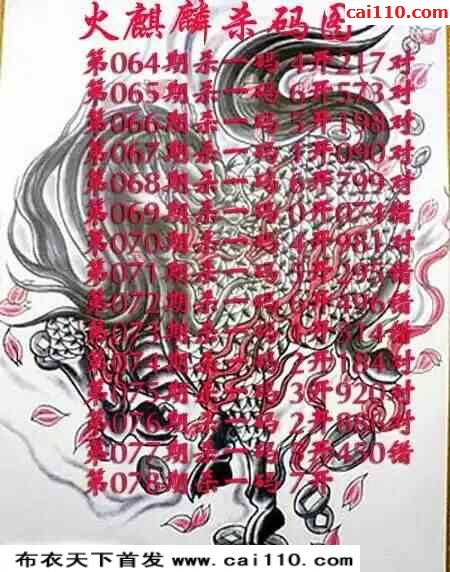 www.cai110.com
火麒麟杀码图
第064期杀一码 4开217对
第065期杀一码 6开573对
第066期杀一码 5开198对
第067期杀一码 1开090对
第068期杀一码 6开799对
第069期杀一码 0开074错
第070期杀一码 4开981对
第071期杀一码 5开295错
第072期杀一码 开496错
第073期杀一码 开514错
第074期杀一码 2开184对
第075期杀一码 3开920对
第076期杀一码 2开 对
第077期杀一码 开450错
第078期杀一码 7开
布衣天下首发 www.cai110.com